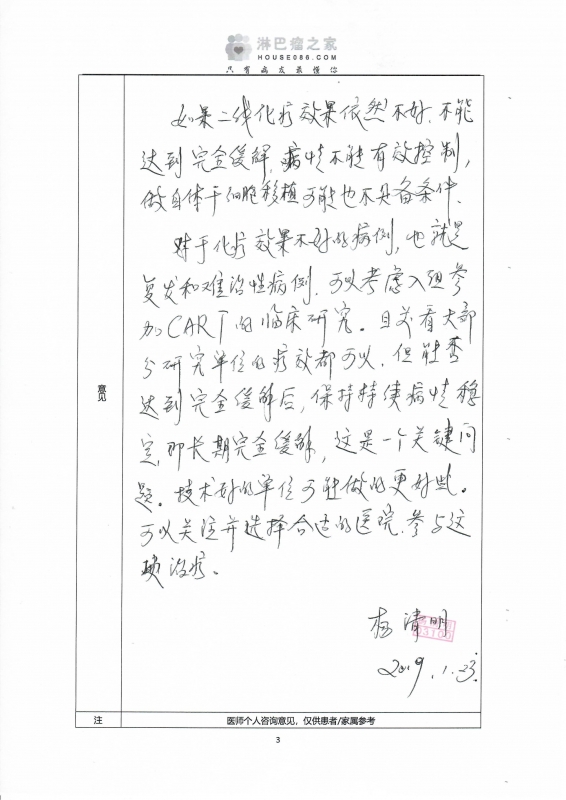 淋巴瘤之家
HOUSE086.COM
只有病友最懂你
如果二线化疗效果依然不好,不能
达到完全缓解,病情不能有效控制,
做自体干细胞移植可能也不具备条件.
对于化疗效果不好的病例,也就是
复发和难治性病例,可以考虑入组参
加CART的临床研究。目前看大部
分研究单位的疗效都可以,但能否
达到完全缓解后,保持持续病情稳
定,即长期完全缓解,这是一个关键问
题。技术好的单位可能做的更好些。
可以关注并选择合适的医院,参与这
项治疗。
意见
清明
2019.1.23.
注
医师个人咨询意见,仅供患者/家属参考
3